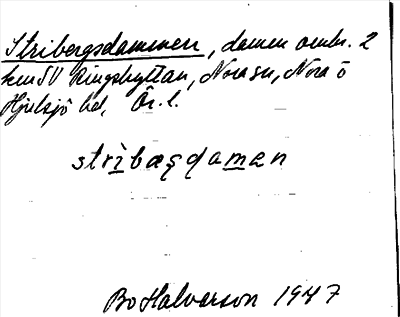 Stribergsdammen, damm omkr. 2
km SV Ringshyttan, Nora sn, Nora o
Hjulsjö bd, Ör. l.
strìbæʂdaman
Bo Halvarson 1947